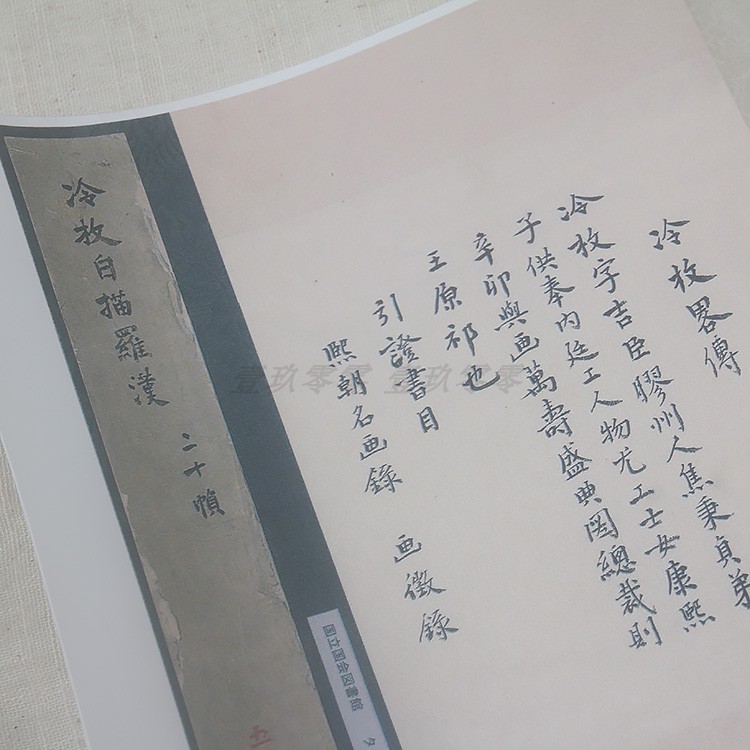 冷枚畧傳
冷枚字吉臣膠州人焦秉貞弟
子供奉内廷工人物尤工士女康熙
辛卯與画萬壽盛典圖總裁則
王原祁也
引證書目
熙朝名画錄 画徵錄
冷枚白描羅漢 二十幀
国立国会図書館
壹玖零字 壹玖零